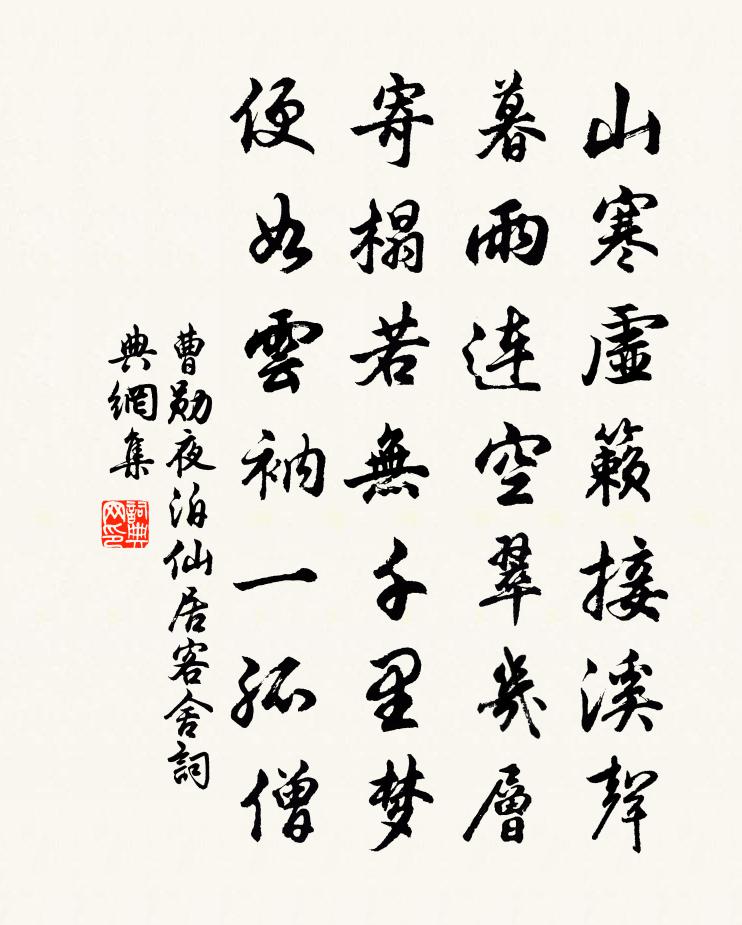 山寒虛籟接溪聲
暮雨連空翠幾層
寄榻若無千里梦
便如雲衲一孤僧
曹勛夜泊仙居客舍詞
典網集
詞典
网印